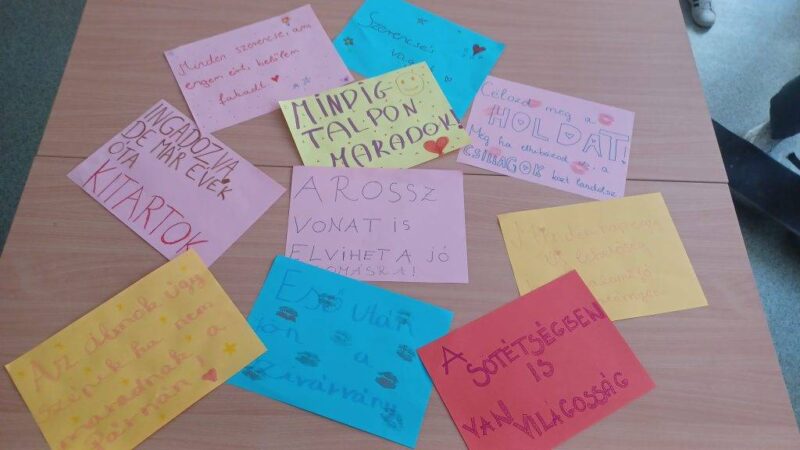 Minden szerencse, ami
engem ért, belőlem
fakadt
Szerencsés
vagy
MINDIG
TALPON
MARADOK!
Célozd meg a
HOLDAT!
Még ha elhibázod is, a
CSILLAGOK közt landolsz
INGADOZVA,
DE MÁR ÉVEK
ÓTA
KITARTOK
A ROSSZ
VONAT IS
ELVIHET A JÓ
!
Minden nap egy
új lehetőség
Az álmok úgy
szépek ha nem
maradnak a
párnán!
Eső után
jön a
szivárvány
A
SÖTÉTSÉGBEN
IS
VAN VILÁGOSSÁG